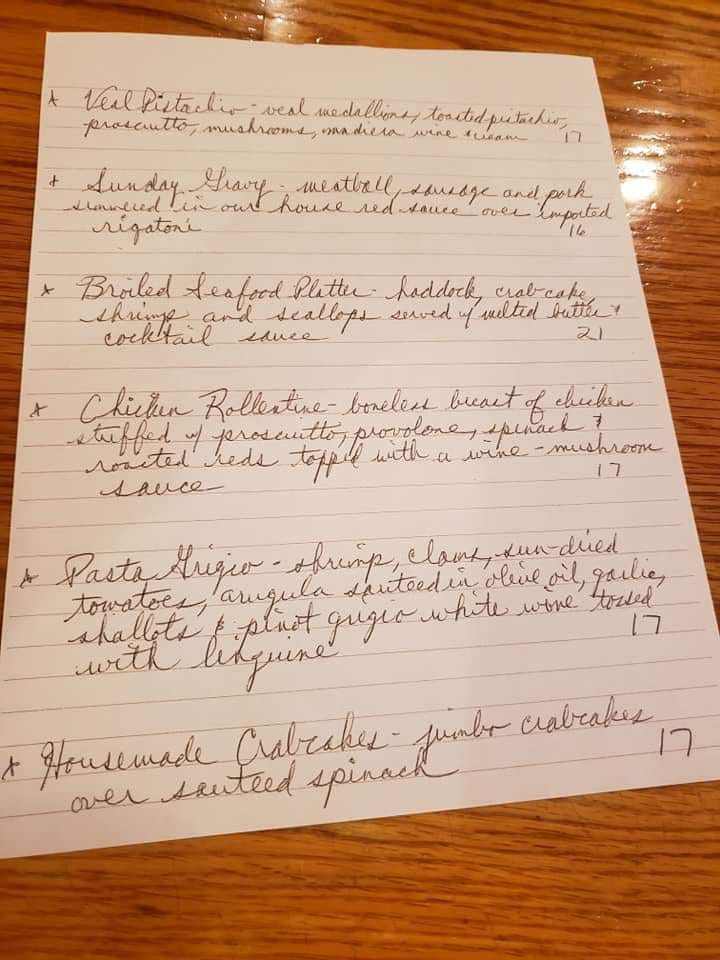 * Veal Pistachio - veal medallions, toasted pistachio,
prosciutto, mushrooms, madiera wine cream 17
* Sunday Gravy - meatball, sausage and pork
simmered in our house red sauce over imported
rigatoni 16
* Broiled Seafood Platter - haddock, crabcake,
shrimp and scallops served w/ melted butter &
cocktail sauce 21
* Chicken Rollentine - boneless breast of chicken
stuffed w/ proscuitto, provolone, spinach &
roasted reds topped with a wine - mushroom
sauce 17
* Pasta Grigio - shrimp, clams, sun-dried
tomatoes, arugula sauteed in olive oil, garlic,
shallots & pinot grigio white wine tossed
with linguine 17
* Housemade Crabcakes - jumbo crabcakes
over sauteed spinach 17